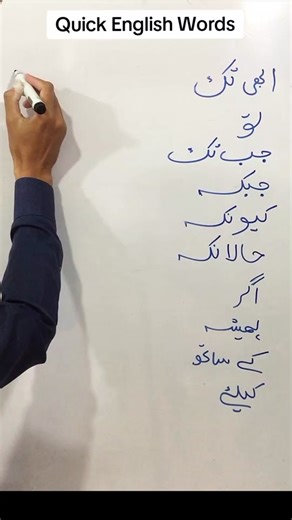 Quick English Words
ابھی تک
تو
جب تک
جبکہ
کیونکہ
حالانکہ
اگر
ہمیشہ
کے ساتھ
کیلئے